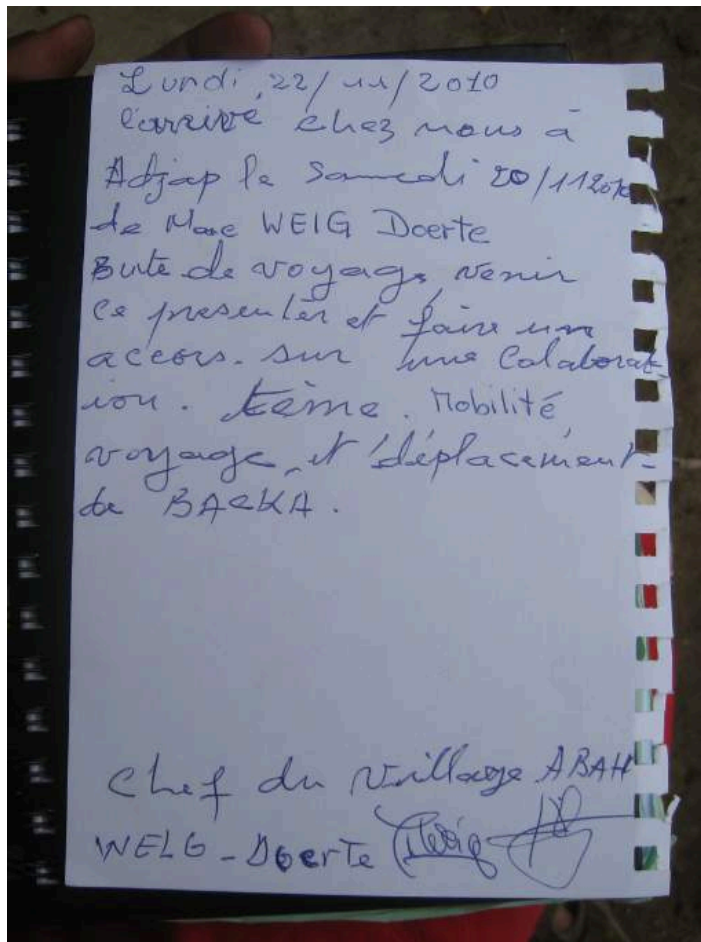 Lundi, 22/11/2010
l'arrivé chez nous à
Adjap le Samedi 20/11 2010
de WEIG Doerte
Bute de voyage, venir
ce presenter et faire un
accors. sur une Colaborat-
ion. tème. Mobilité,
voyage, et déplacement-
de BAEKA.
Chef du Village ABAH
WELG - Doerte